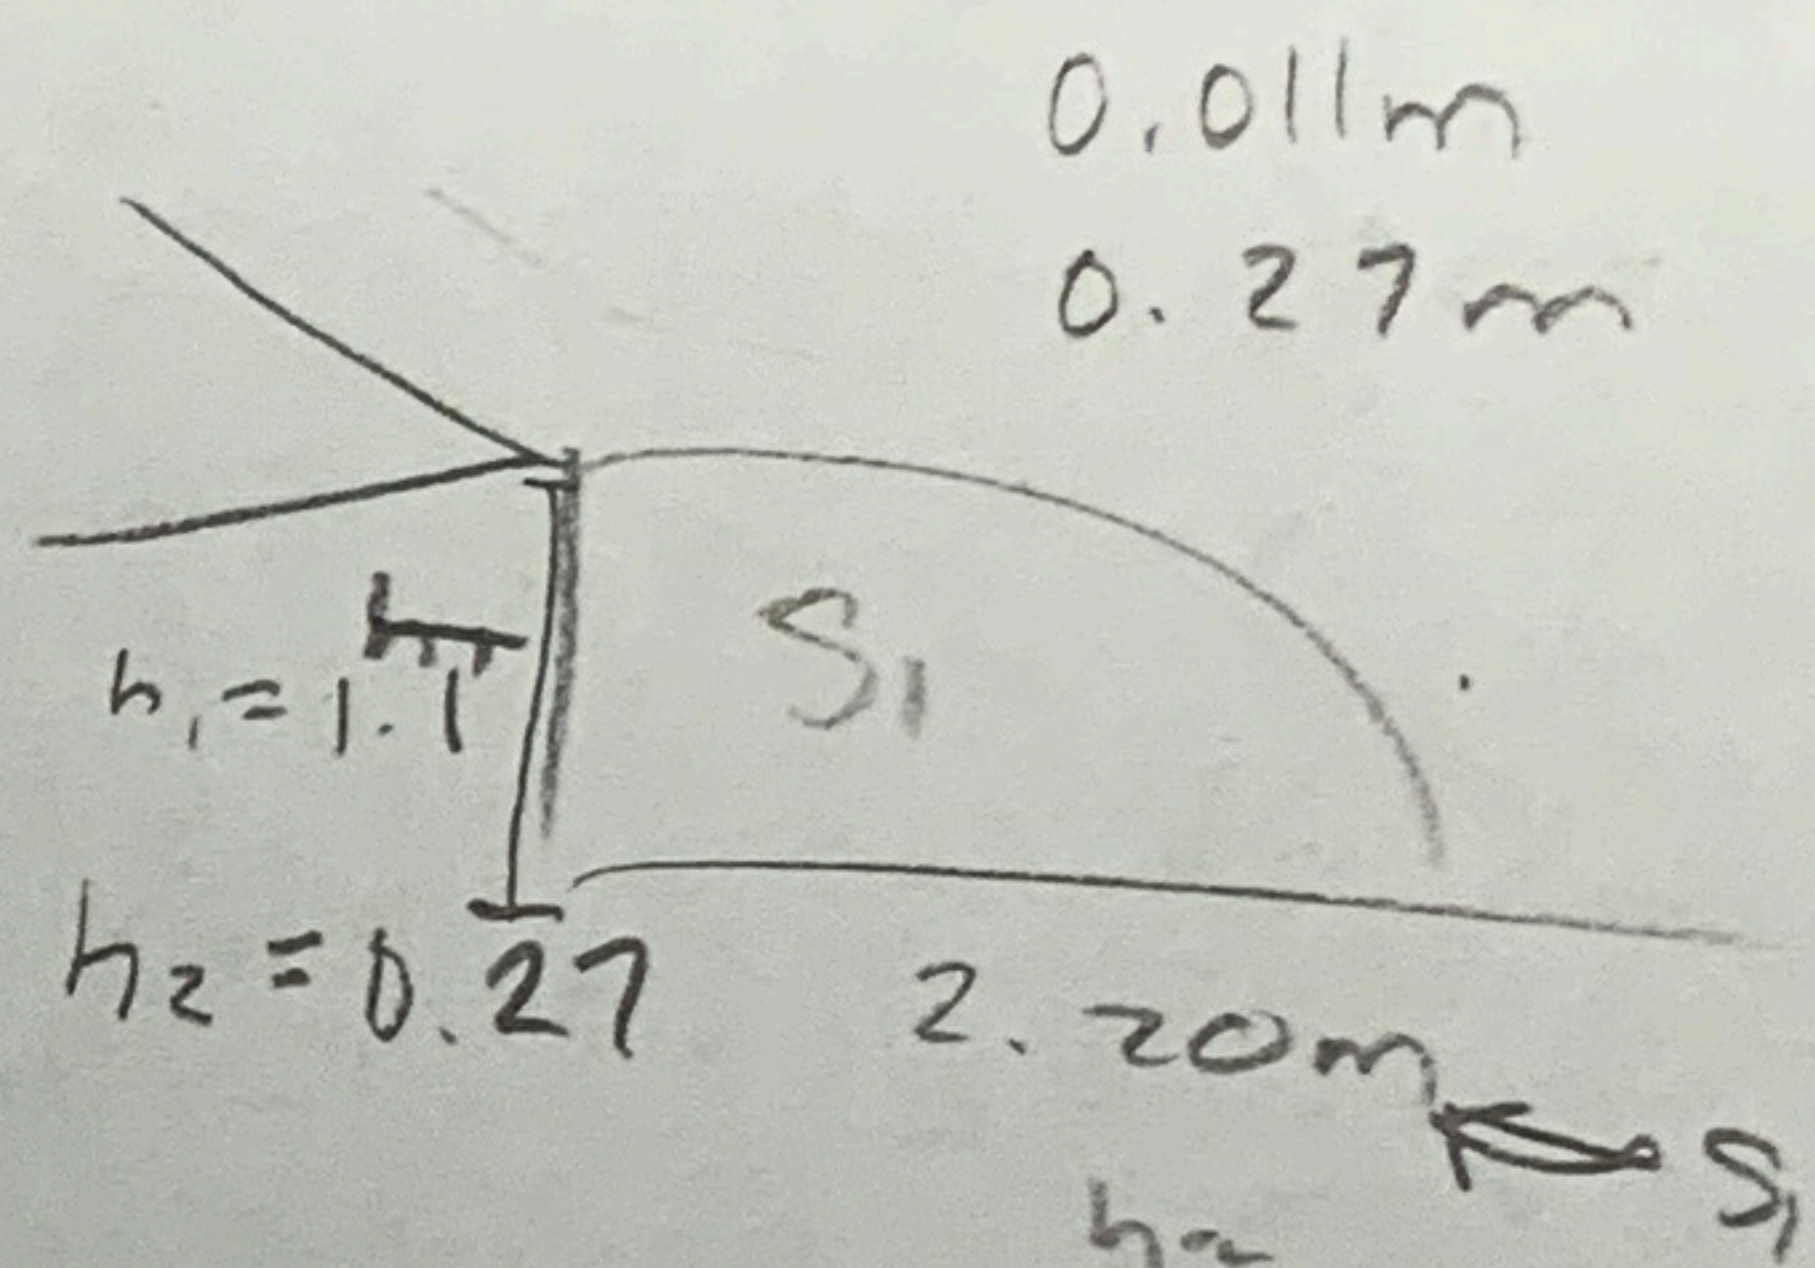 0.011m
0.27m
S1
h1=1.1
h2=0.27
2.20m
S1